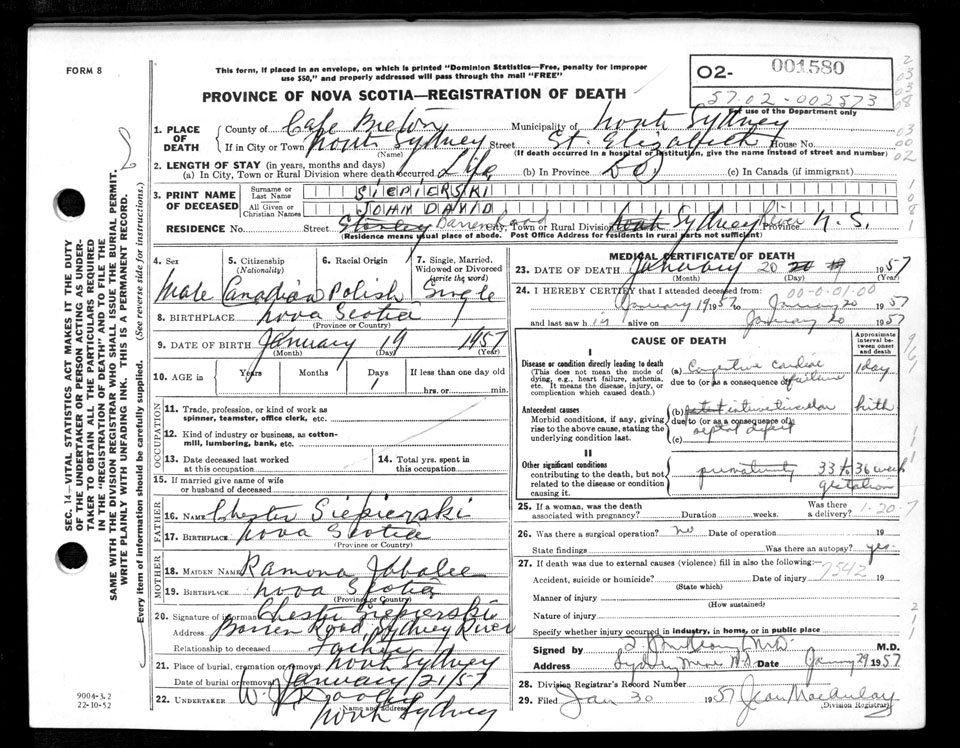 FORM 8
This form, if placed in an envelope, on which is printed "Dominion Statistics—Free, penalty for improper
use $50," and properly addressed will pass through the mail "FREE"
O2- 001580
5702-002573
For use of the Department only
PROVINCE OF NOVA SCOTIA—REGISTRATION OF DEATH
1. PLACE OF DEATH County of Cape Breton Municipality of North Sydney
If in City or Town North Sydney Street St. Elizabeth House No.
(Name) (If death occurred in a hospital or institution, give the name instead of street and number)
2. LENGTH OF STAY (in years, months and days)
(a) In City, Town or Rural Division where death occurred Life (b) In Province (c) In Canada (if immigrant)
3. PRINT NAME OF DECEASED Surname or Last Name SIEPIERSKI
All Given or Christian Names JOHN DAVID
RESIDENCE No. Street Barren Road City, Town or Rural Division Sydney River Province N.S.
(Residence means usual place of abode. Post Office Address for residents in rural parts not sufficient)
4. Sex 5. Citizenship (Nationality) 6. Racial Origin 7. Single, Married, Widowed or Divorced (write the word)
Male Canadian Polish Single
8. BIRTHPLACE Nova Scotia
(Province or Country)
9. DATE OF BIRTH January 19 1957
(Month) (Day) (Year)
10. AGE in Years Months Days 1 If less than one day old
hrs. or min.
OCCUPATION
11. Trade, profession, or kind of work as
spinner, teamster, office clerk, etc.
12. Kind of industry or business, as cotton-
mill, lumbering, bank, etc.
13. Date deceased last worked
at this occupation
14. Total yrs. spent in
this occupation
15. If married give name of wife
or husband of deceased
FATHER
16. NAME Chester Siepierski
17. BIRTHPLACE Nova Scotia
(Province or Country)
MOTHER
18. MAIDEN NAME Ramona Jabalee
19. BIRTHPLACE Nova Scotia
(Province or Country)
20. Signature of informant Chester Siepierski
Address Barren Road Sydney River
Relationship to deceased Father
21. Place of burial, cremation or removal North Sydney
Date of burial or removal January 21/57
22. UNDERTAKER W. J.
(Name and address) North Sydney
MEDICAL CERTIFICATE OF DEATH
23. DATE OF DEATH January 20 1957
(Month) (Day) (Year)
00-0-01-00
24. I HEREBY CERTIFY that I attended deceased from:
January 19 1957 to January 20 1957
and last saw him alive on January 20 1957
CAUSE OF DEATH
Approximate interval between onset and death
I
Disease or condition directly leading to death
(This does not mean the mode of
dying, e.g., heart failure, asthenia,
etc. It means the disease, injury, or
complication which caused death.)
(a) Congestive cardiac failure 1 day
due to (or as a consequence of)
Antecedent causes
Morbid conditions, if any, giving
rise to the above cause, stating the
underlying condition last.
(b) patent interventricular septal defect birth
due to (or as a consequence of)
(c)
II
Other significant conditions
contributing to the death, but not
related to the disease or condition
causing it.
prematurity 33 to 36 week gestation
25. If a woman, was the death
associated with pregnancy? Duration weeks. Was there a delivery? 1-20-7
26. Was there a surgical operation? no Date of operation 19
State findings Was there an autopsy? yes
27. If death was due to external causes (violence) fill in also the following:—
7542
Accident, suicide or homicide? Date of injury 19
(State which)
Manner of injury
(How sustained)
Nature of injury
Specify whether injury occurred in industry, in home, or in public place
Signed by M.D. M.D.
Address Sydney Mines N.S. Date January 29 1957
28. Division Registrar's Record Number
29. Filed Jan 30 1957 Jean MacAulay
(Division Registrar)
SEC. 14—VITAL STATISTICS ACT MAKES IT THE DUTY
OF THE UNDERTAKER OR PERSON ACTING AS UNDER-
TAKER TO OBTAIN ALL THE PARTICULARS REQUIRED
IN THE "REGISTRATION OF DEATH" AND TO FILE THE
SAME WITH THE DIVISION REGISTRAR WHO SHALL ISSUE THE BURIAL PERMIT.
WRITE PLAINLY WITH UNFADING INK. THIS IS A PERMANENT RECORD.
Every item of information should be carefully supplied. (See reverse side for instructions.)
9004-3.2
22-10-52